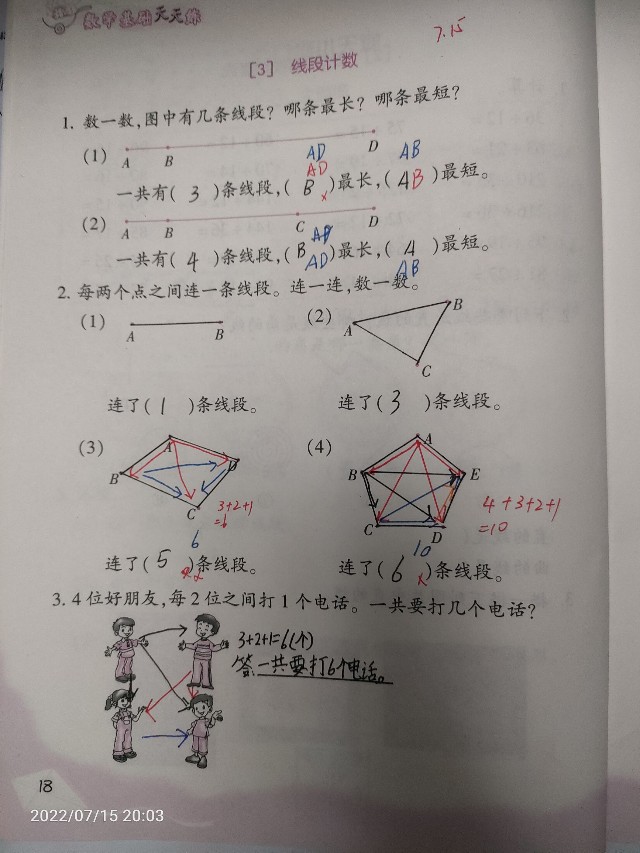 数学基础天天练
7.15
[3] 线段计数
1. 数一数,图中有几条线段?哪条最长?哪条最短?
(1) A B D
AD AB
AD
一共有( 3 )条线段,( B × )最长,( 4B )最短。
(2) A B C D
一共有( 4 )条线段,( B AD )最长,( 4 )最短。
AB
2. 每两个点之间连一条线段。连一连,数一数。
(1) A B
(2) A B C
连了( 1 )条线段。 连了( 3 )条线段。
(3) A B C D
3+2+1
=6
(4) A B C D E
4+3+2+1
=10
6 10
连了( 5 )条线段。 连了( 6 × )条线段。
3. 4位好朋友,每2位之间打1个电话。一共要打几个电话?
3+2+1=6(个)
答一共要打6个电话。
18
2022/07/15 20:03